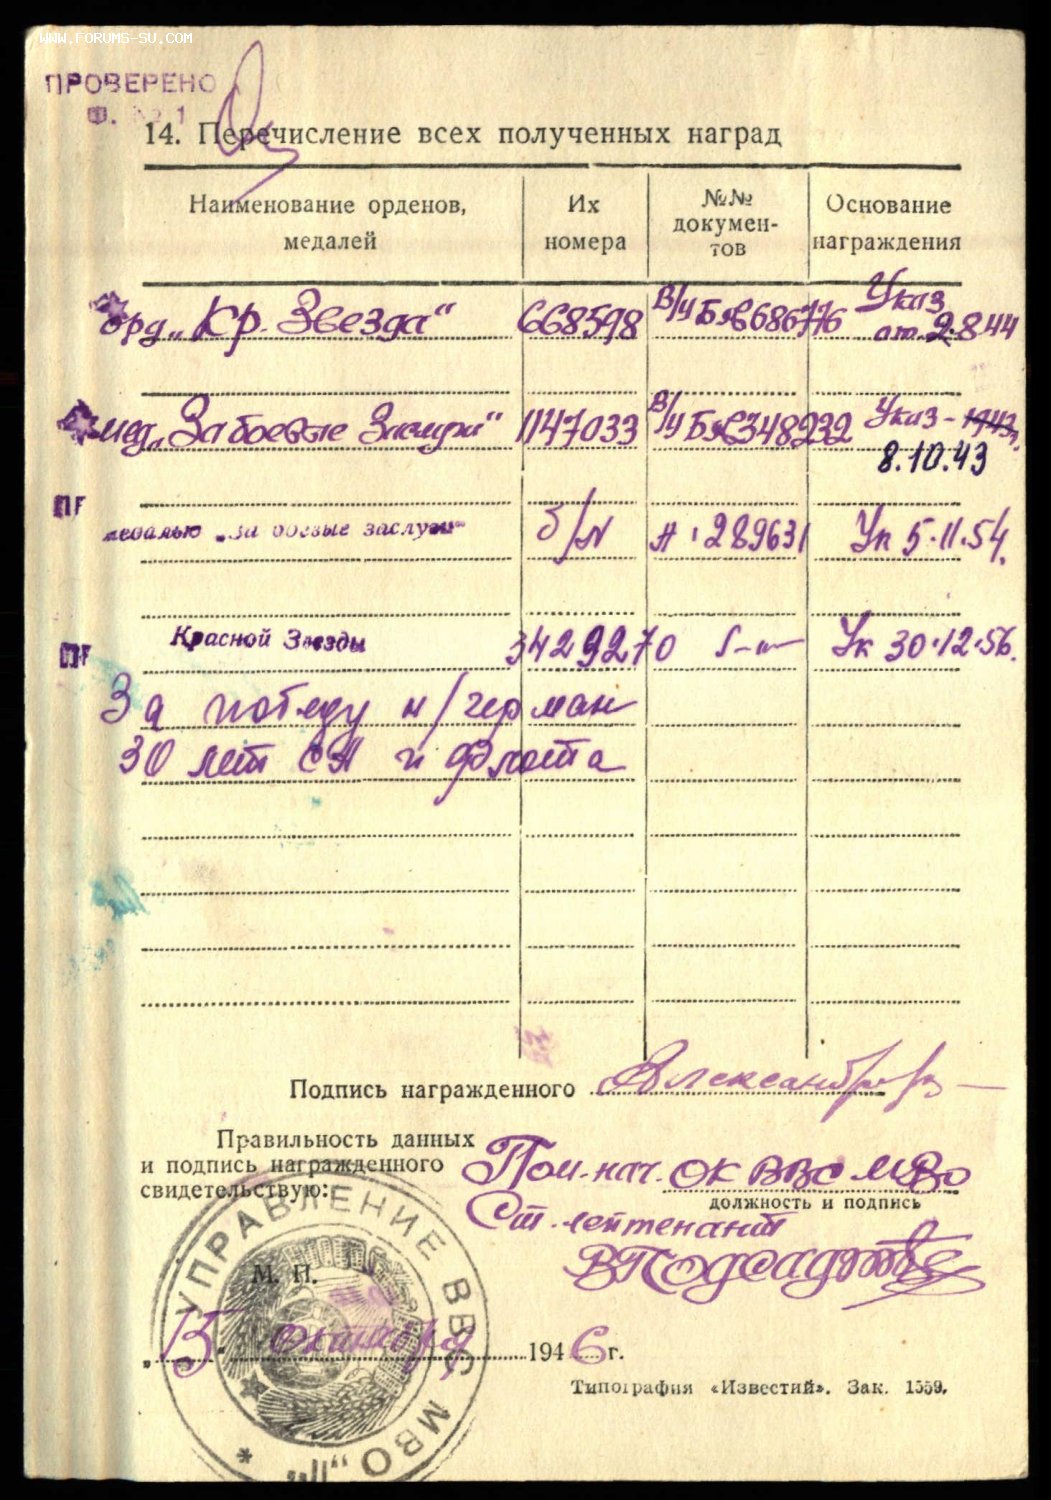 WWW.FORUMS-SU.COM
ПРОВЕРЕНО
Ф. № 1
14. Перечисление всех полученных наград
Наименование орденов, медалей
Их номера
№№ докумен-тов
Основание награждения
орд. „Кр. Звезда“ 668598 В/ч Б№686776 Указ от 2.8.44
мед. „За боевые Заслуги“ 1147033 В/ч Б№348232 Указ - 1943г.
8.10.43
ПГ
медалью „За боевые заслуги“ б/N А 289631 Ук 5.11.54.
ПГ
Красной Звезды 3429270 Ук 30.12.56.
За победу н/герман
30 лет СА и Флота
Подпись награжденного
Правильность данных
и подпись награжденного
свидетельствую:
Пом. нач. ОК ВВС МВО
должность и подпись
Ст. лейтенант
М. П.
УПРАВЛЕНИЕ ВВС МВО
„15“ октября 1946 г.
Типография «Известий». Зак. 1559.